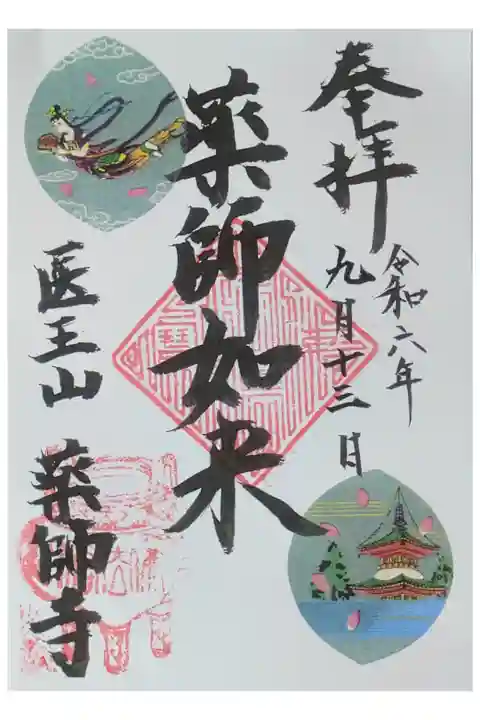 奉拝
令和六年
九月十三日
薬師如来
医王山 薬師寺